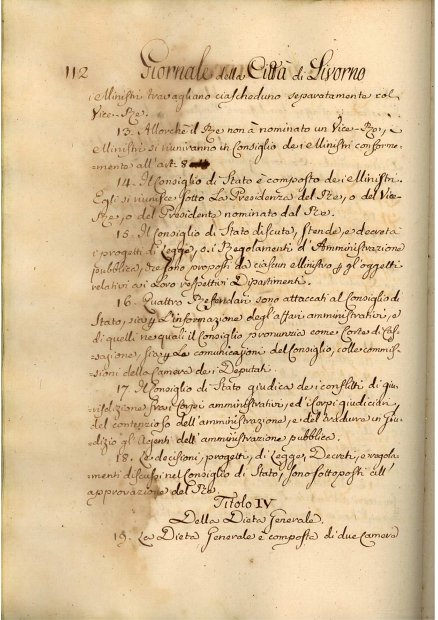 112 Giornale della Città di Livorno
i Ministri travagliano ciascheduno separatamente col
Vice-Re.
13. Allorchè il Re non à nominato un Vice-Re, i
Ministri si riuniranno in Consiglio de i Ministri conforme-
mente all'art. 8
14. Il Consiglio di Stato è composto de i Ministri.
Egli si riunisce sotto La Presidenza del Re, o del Vice-
Re, o del Presidente nominato dal Re.
15. Il Consiglio di Stato discute, stende, e decreta
i progetti di Legge, o i Regolamenti d'Amministrazione
pubblica, che sono proposti da ciascun Ministro gli oggetti
relativi a i Loro respettivi Dipartimenti.
16. Quattro Referendari sono attaccati al Consiglio di
Stato, sia L'informazione degl'affari amministrativi, e
di quelli ne i quali il Consiglio pronunzia come Corte di Cas-
sazione, sia Le comunicazioni del Consiglio, colle commis-
sioni della Camera de i Deputati.
17. Il Consiglio di Stato giudica de i conflitti di giu-
risdizione fra i Corpi amministrativi, ed i Corpi giudiciari,
del contenzioso dell'amministrazione, e del tradurre in Giu-
dizio gl'Agenti dell'amministrazione pubblica.
18. Le decisioni, progetti, di Legge, Decreti, e regola-
menti discussi nel Consiglio di Stato, sono sottoposti all'
approvazione del Re.
Titolo IV
Della Dieta Generale.
19. La Dieta Generale è composta di due Camere